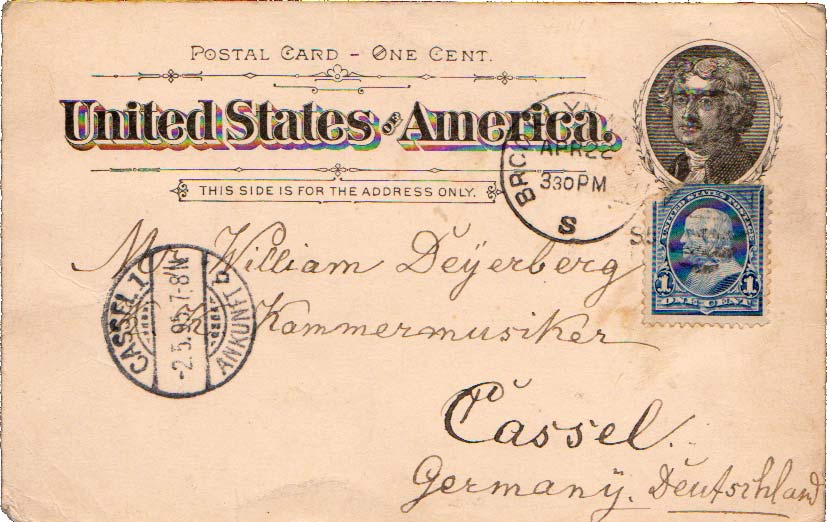 POSTAL CARD – ONE CENT.
United States OF America.
THIS SIDE IS FOR THE ADDRESS ONLY.
APR 22
330 PM
S
UNITED STATES POSTAGE
1 1
ONE CENT
Mr William Deÿerberg
Kammermusiker
Cassel.
Germanÿ. Deutschland
CASSEL 1
-2.5.95.7-8 N
ANKUNFT